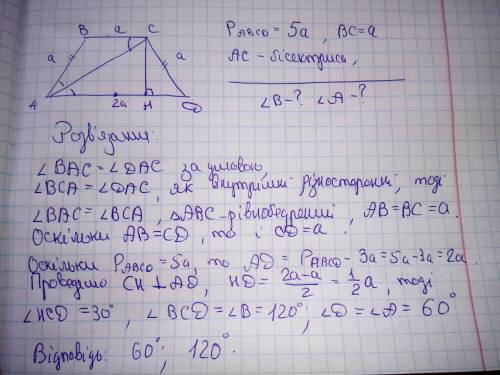 B a C
a a
A 2a H D
P ABCD = 5a, BC=a
AC - бісектриса,
∠B-? ∠A-?
Розв'язання:
∠BAC = ∠DAC за умовою,
∠BCA = ∠DAC, як внутрішні різносторонні, тоді
∠BAC = ∠BCA, △ABC - рівнобедренний, AB=BC=a.
Оскільки AB=CD, то і CD=a.
Оскільки P ABCD = 5a, то AD = P ABCD - 3a = 5a-3a = 2a.
Проведемо CH ⊥ AD, HD = (2a-a)/2 = 1/2 a, тоді
∠HCD = 30°, ∠BCD = ∠B = 120°; ∠D = ∠A = 60°
Відповідь: 60°; 120°.